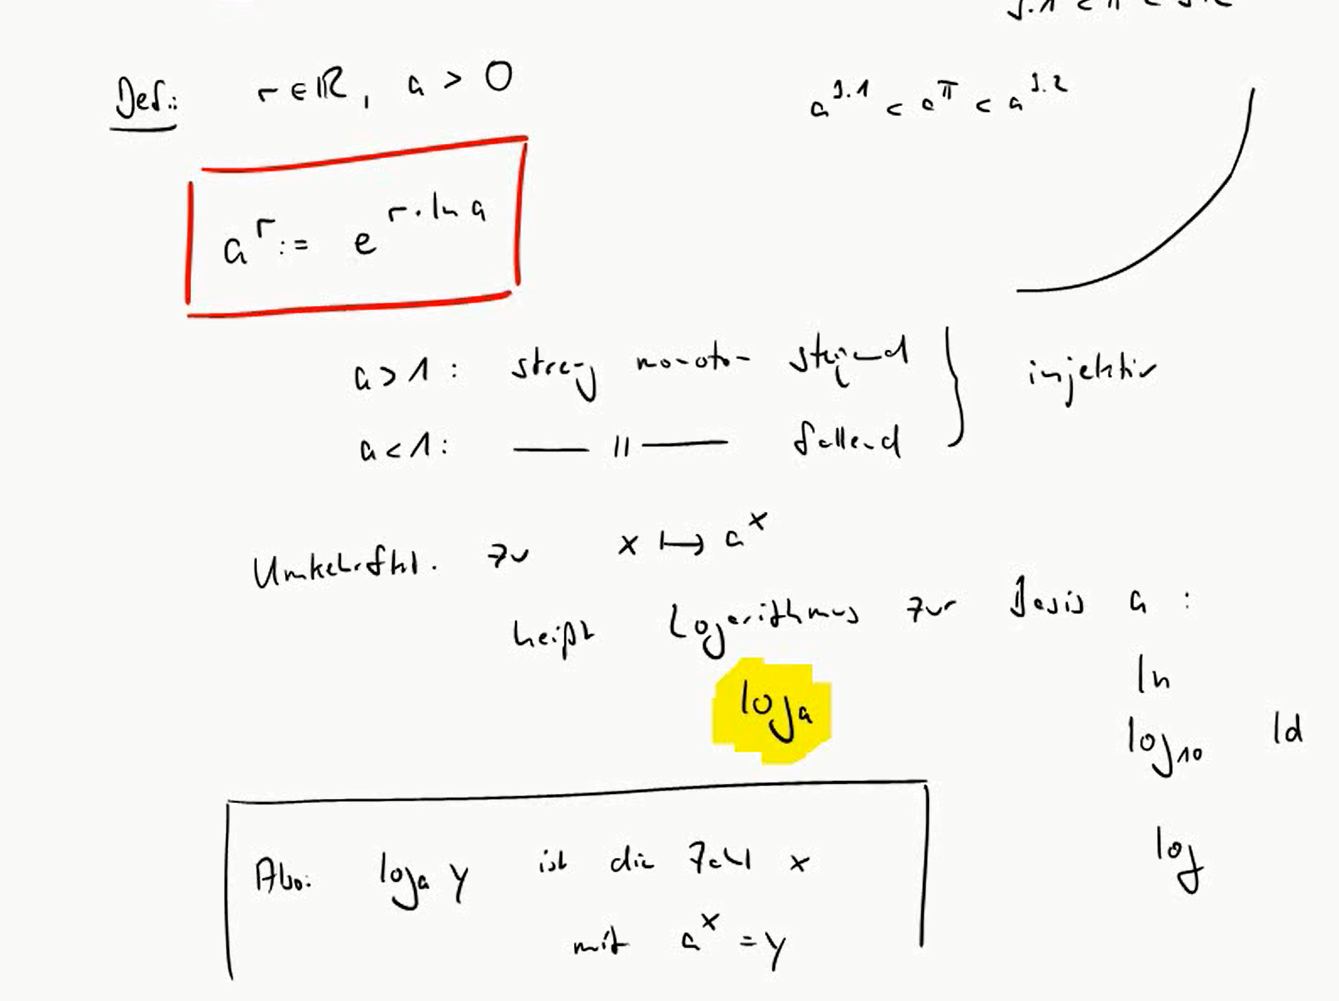 3.1 < π < 3.2
Def.: r ∈ ℝ, a > 0
a^3.1 < a^π < a^3.2
a^r := e^(r·ln a)
a > 1 : streng monoton steigend } injektiv
a < 1 : —— || —— fallend
Umkehrfkt. zu x ↦ a^x
heißt Logarithmus zur Basis a :
ln
log_a
log_10 ld
log
Also: log_a y ist die Zahl x
mit a^x = y